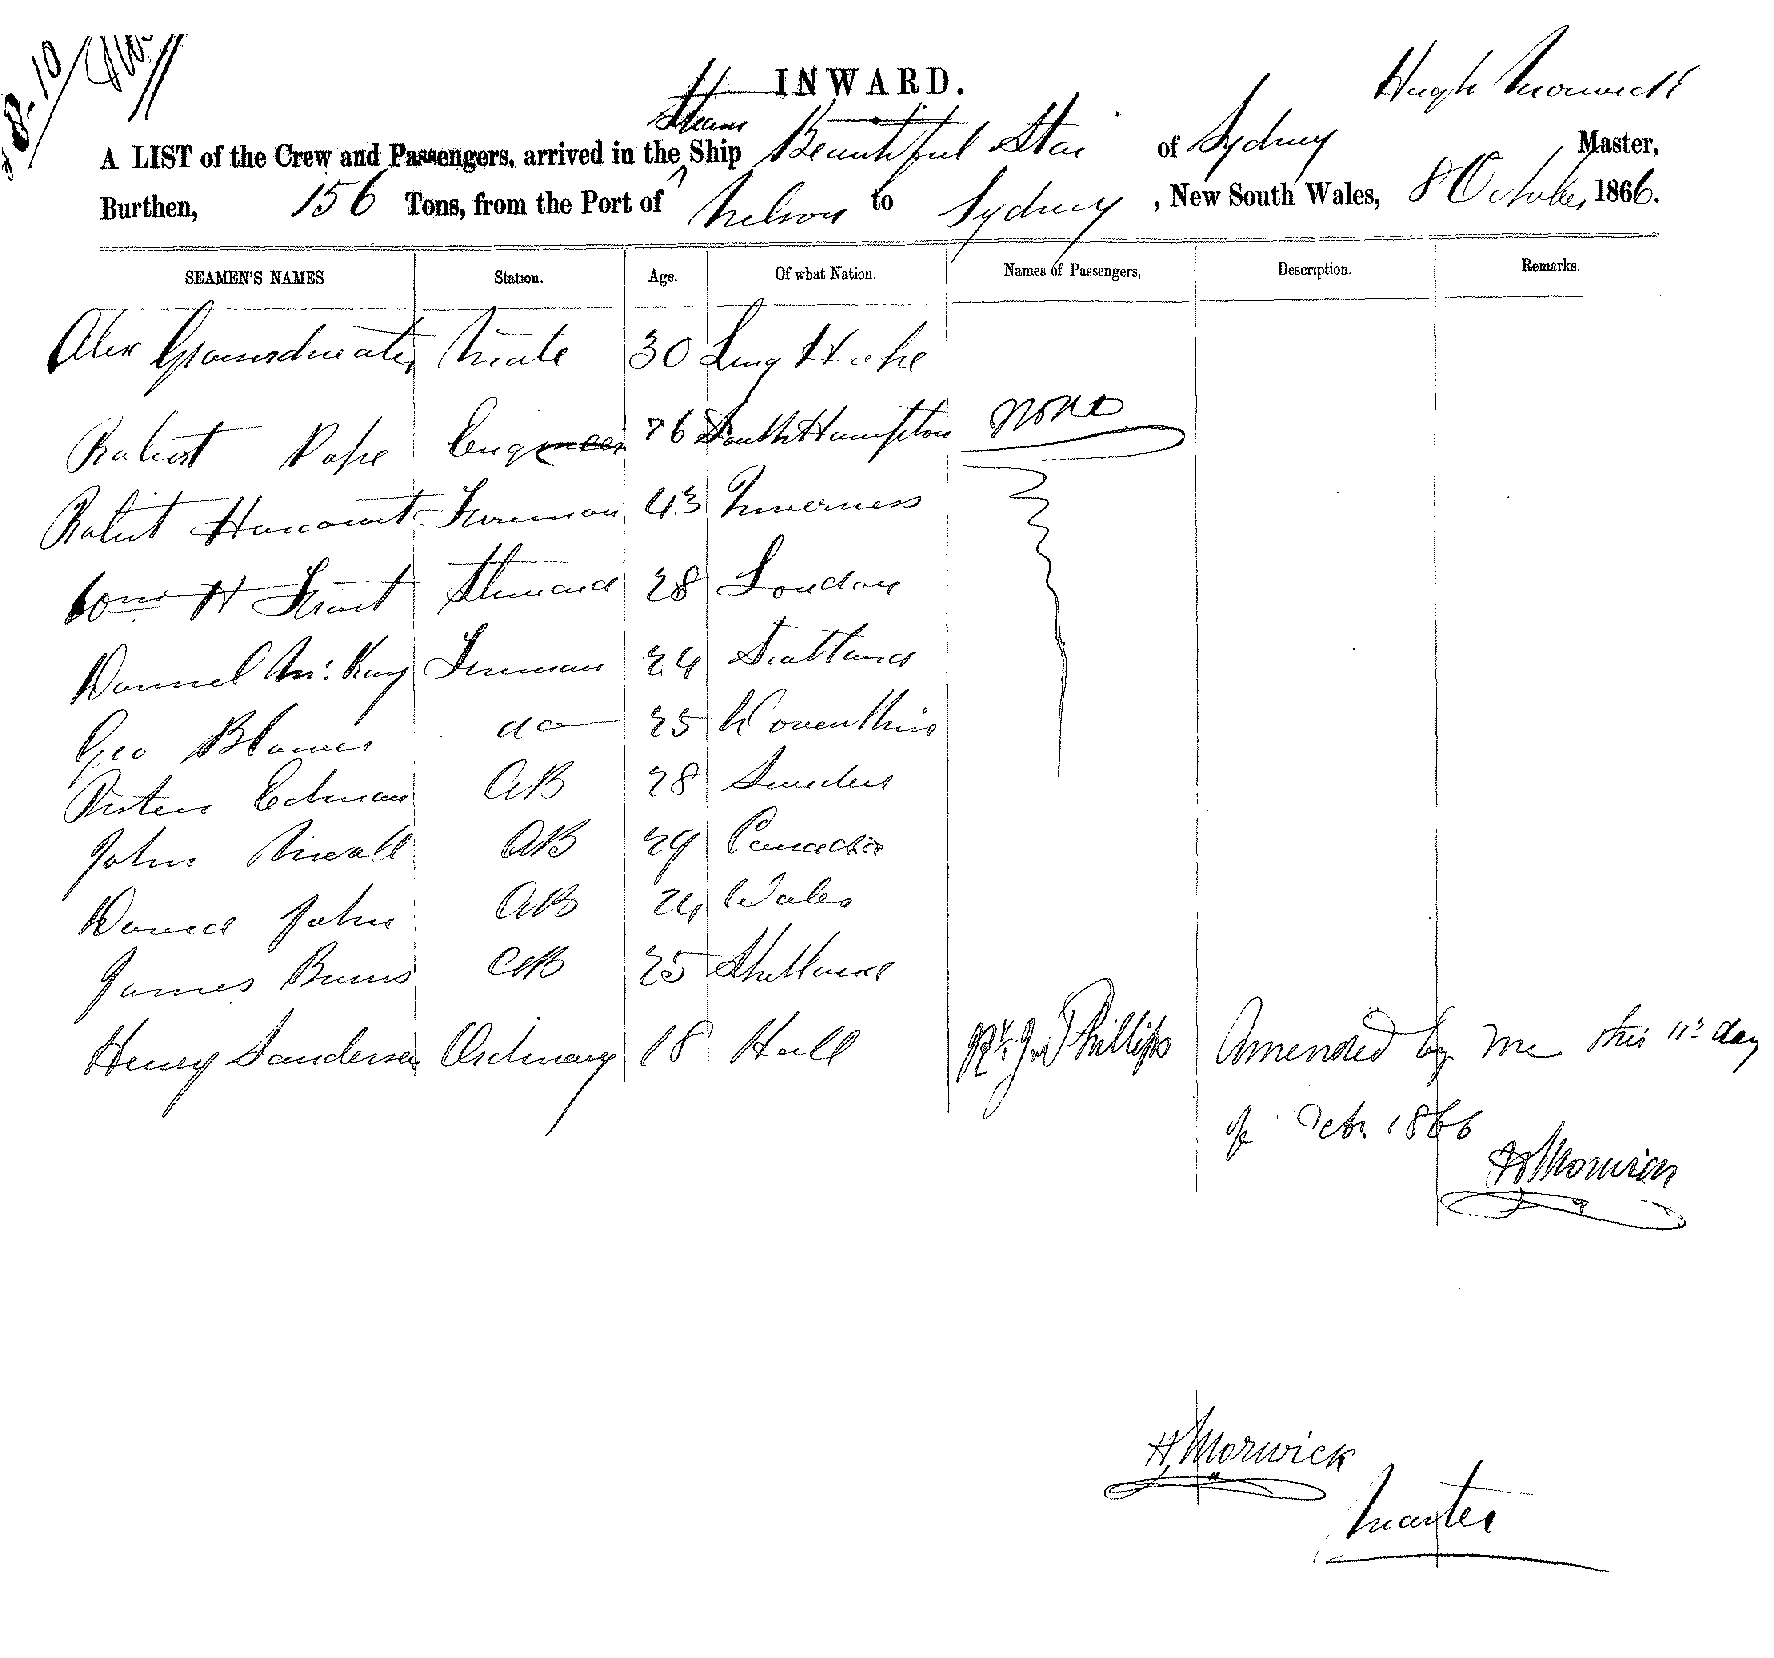 8-10
INWARD.
Hugh Morwick
Steam
A LIST of the Crew and Passengers, arrived in the Ship Beautiful Star of Sydney Master,
Burthen, 156 Tons, from the Port of Nelson to Sydney, New South Wales, 8 October 1866.
SEAMEN'S NAMES Station. Age. Of what Nation. Names of Passengers, Description. Remarks.
Alex Groundwater Mate 30 Long Hope
Robert Pope Engineer 26 South Hampton None
Robert Harcourt Foreman 43 Inverness
Wm H Grant Steward 28 London
Daniel McKay Fireman 24 Scotland
Geo do 25
AB 28
John AB 29 Canada
Daniel John AB 24 Wales
James Burns AB 25 Shetland
Henry Sanderson Ordinary 18 Hull Phillips Amended by me this 11th day
of Octr 1866
H Morwick
H Morwick
Master